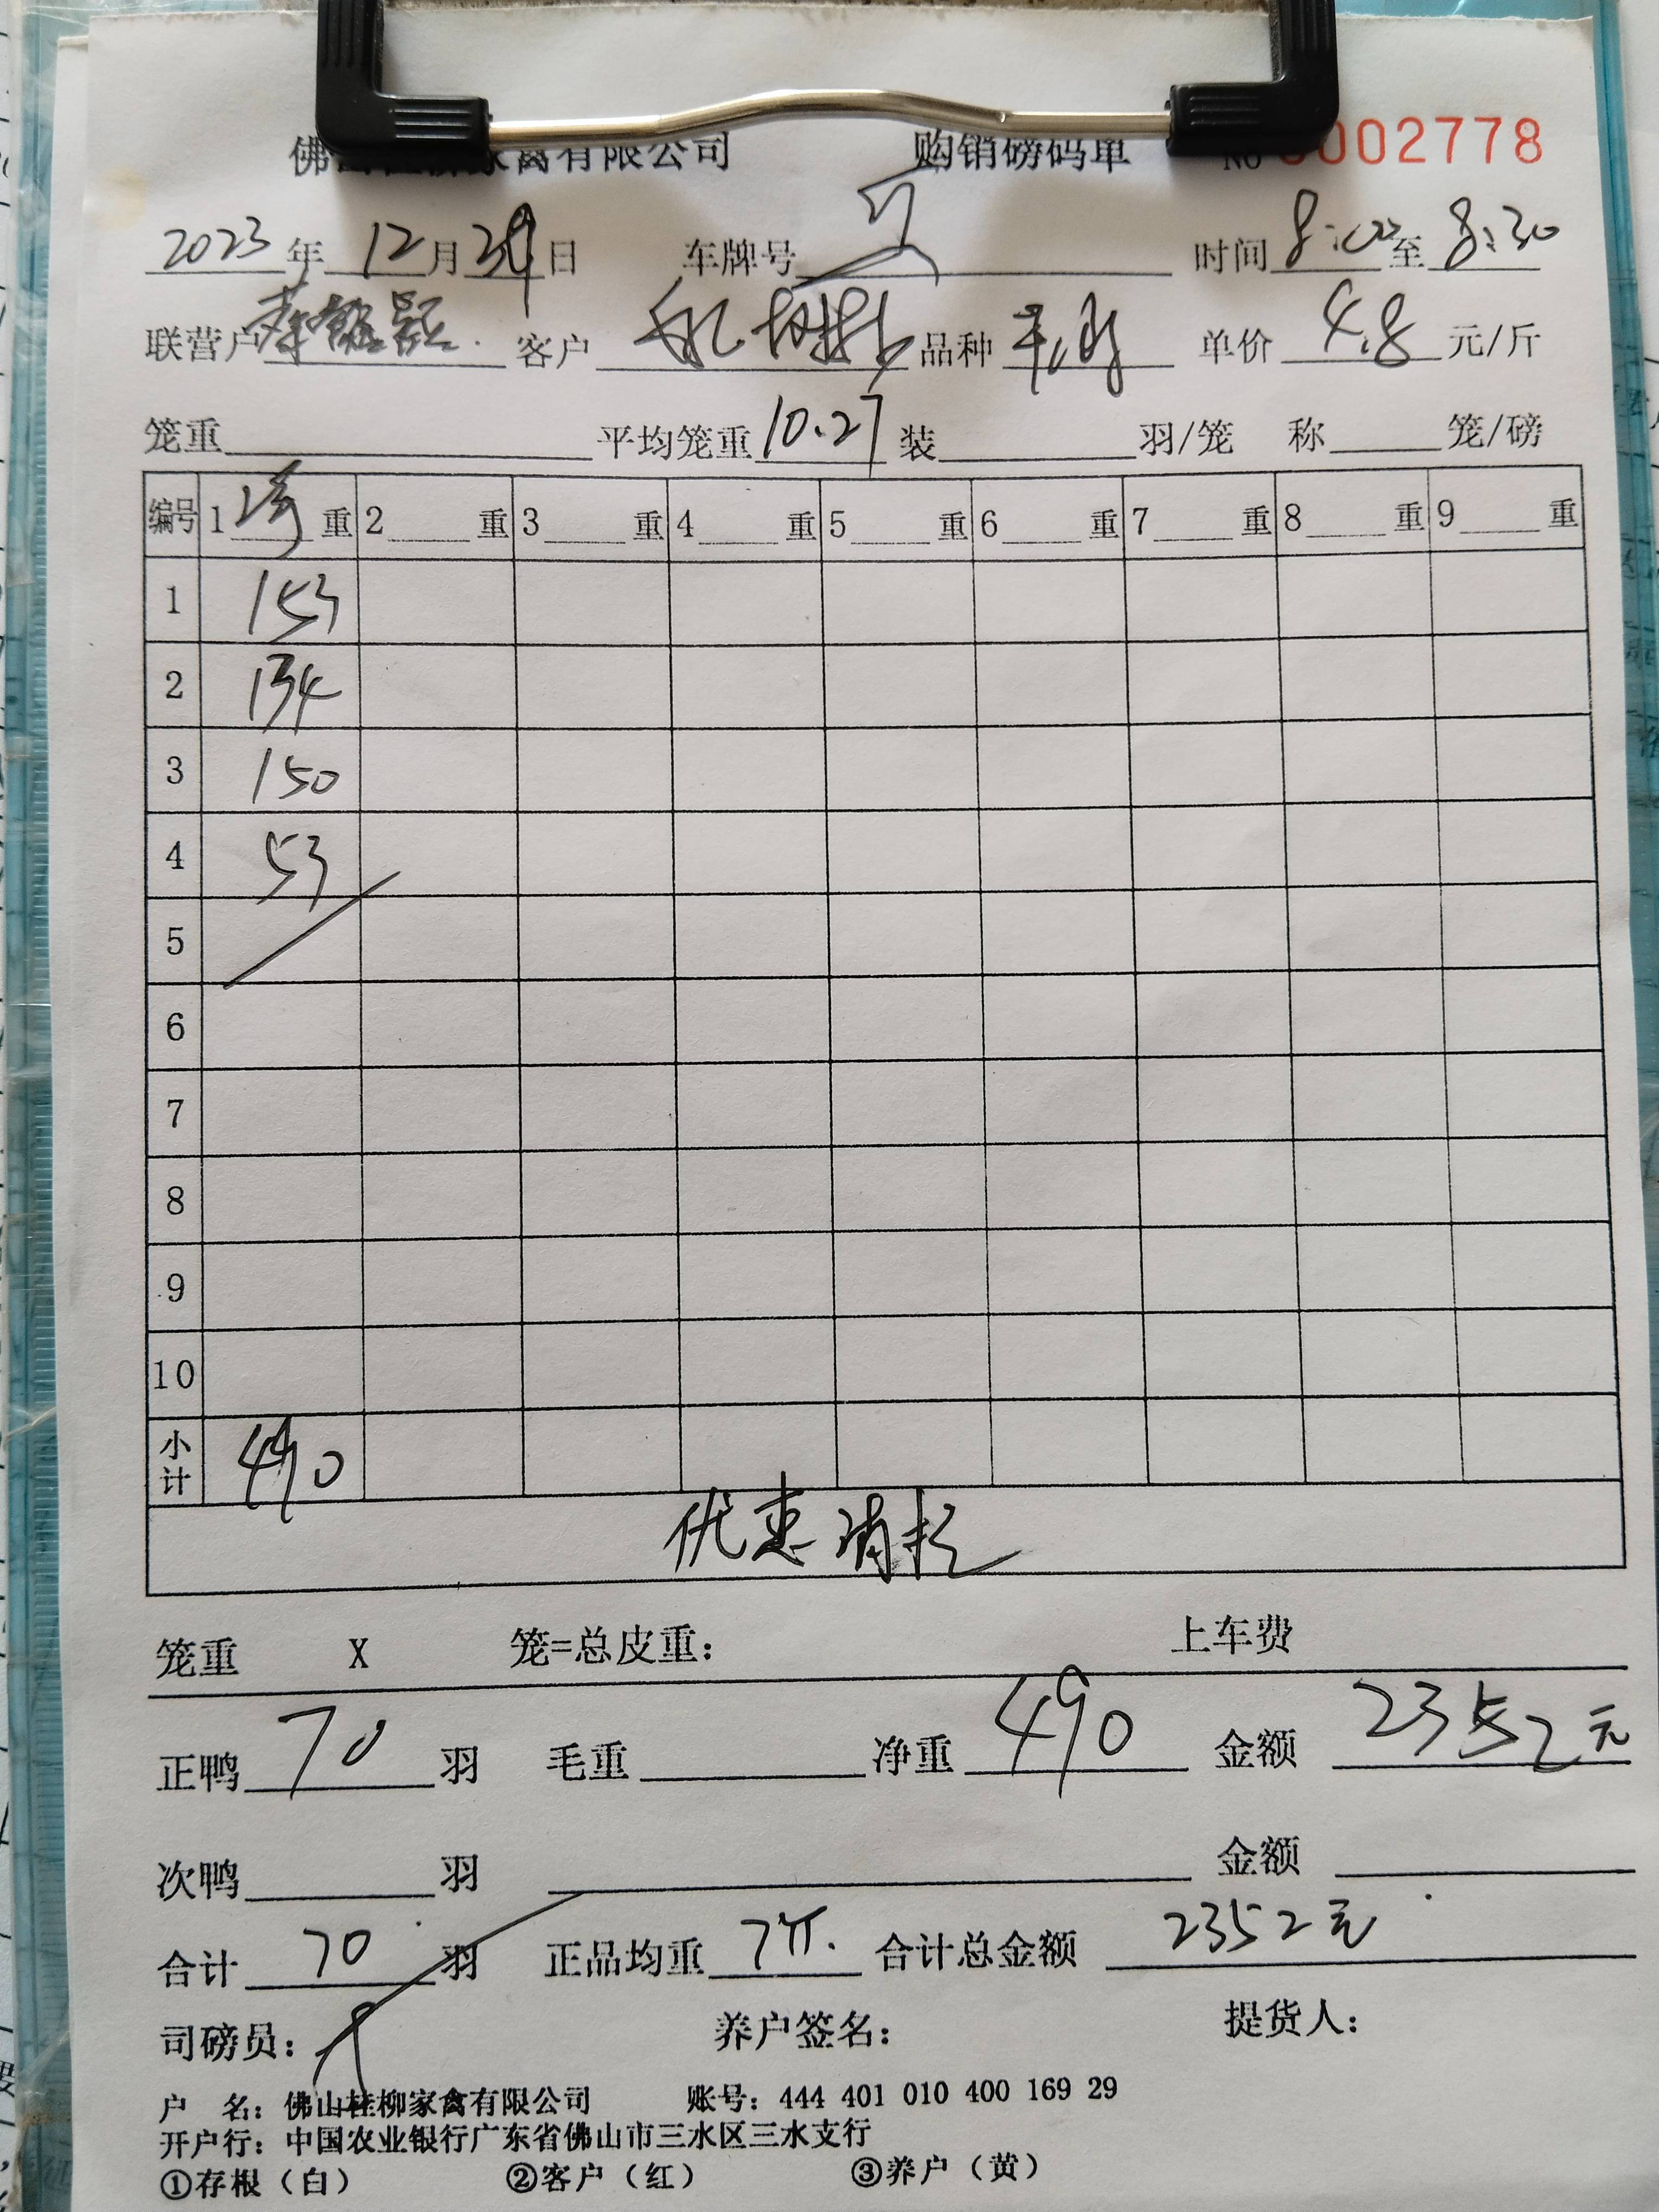 佛山桂柳家禽有限公司 购销磅码单 No 0002778
2023年12月29日 车牌号 时间8:00至8:30
联营户 客户 品种 单价4.8元/斤
笼重 平均笼重10.27 装 羽/笼 称 笼/磅
编号 1净重 2 重 3 重 4 重 5 重 6 重 7 重 8 重 9 重
1 153
2 134
3 150
4 53
5
6
7
8
9
10
小计 490
优惠消耗
笼重 X 笼=总皮重: 上车费
正鸭70羽 毛重 净重490 金额2352元
次鸭 羽 金额
合计70羽 正品均重7斤. 合计总金额2352元
司磅员: 养户签名: 提货人:
户 名: 佛山桂柳家禽有限公司 账号: 444 401 010 400 169 29
开户行: 中国农业银行广东省佛山市三水区三水支行
①存根（白） ②客户（红） ③养户（黄）